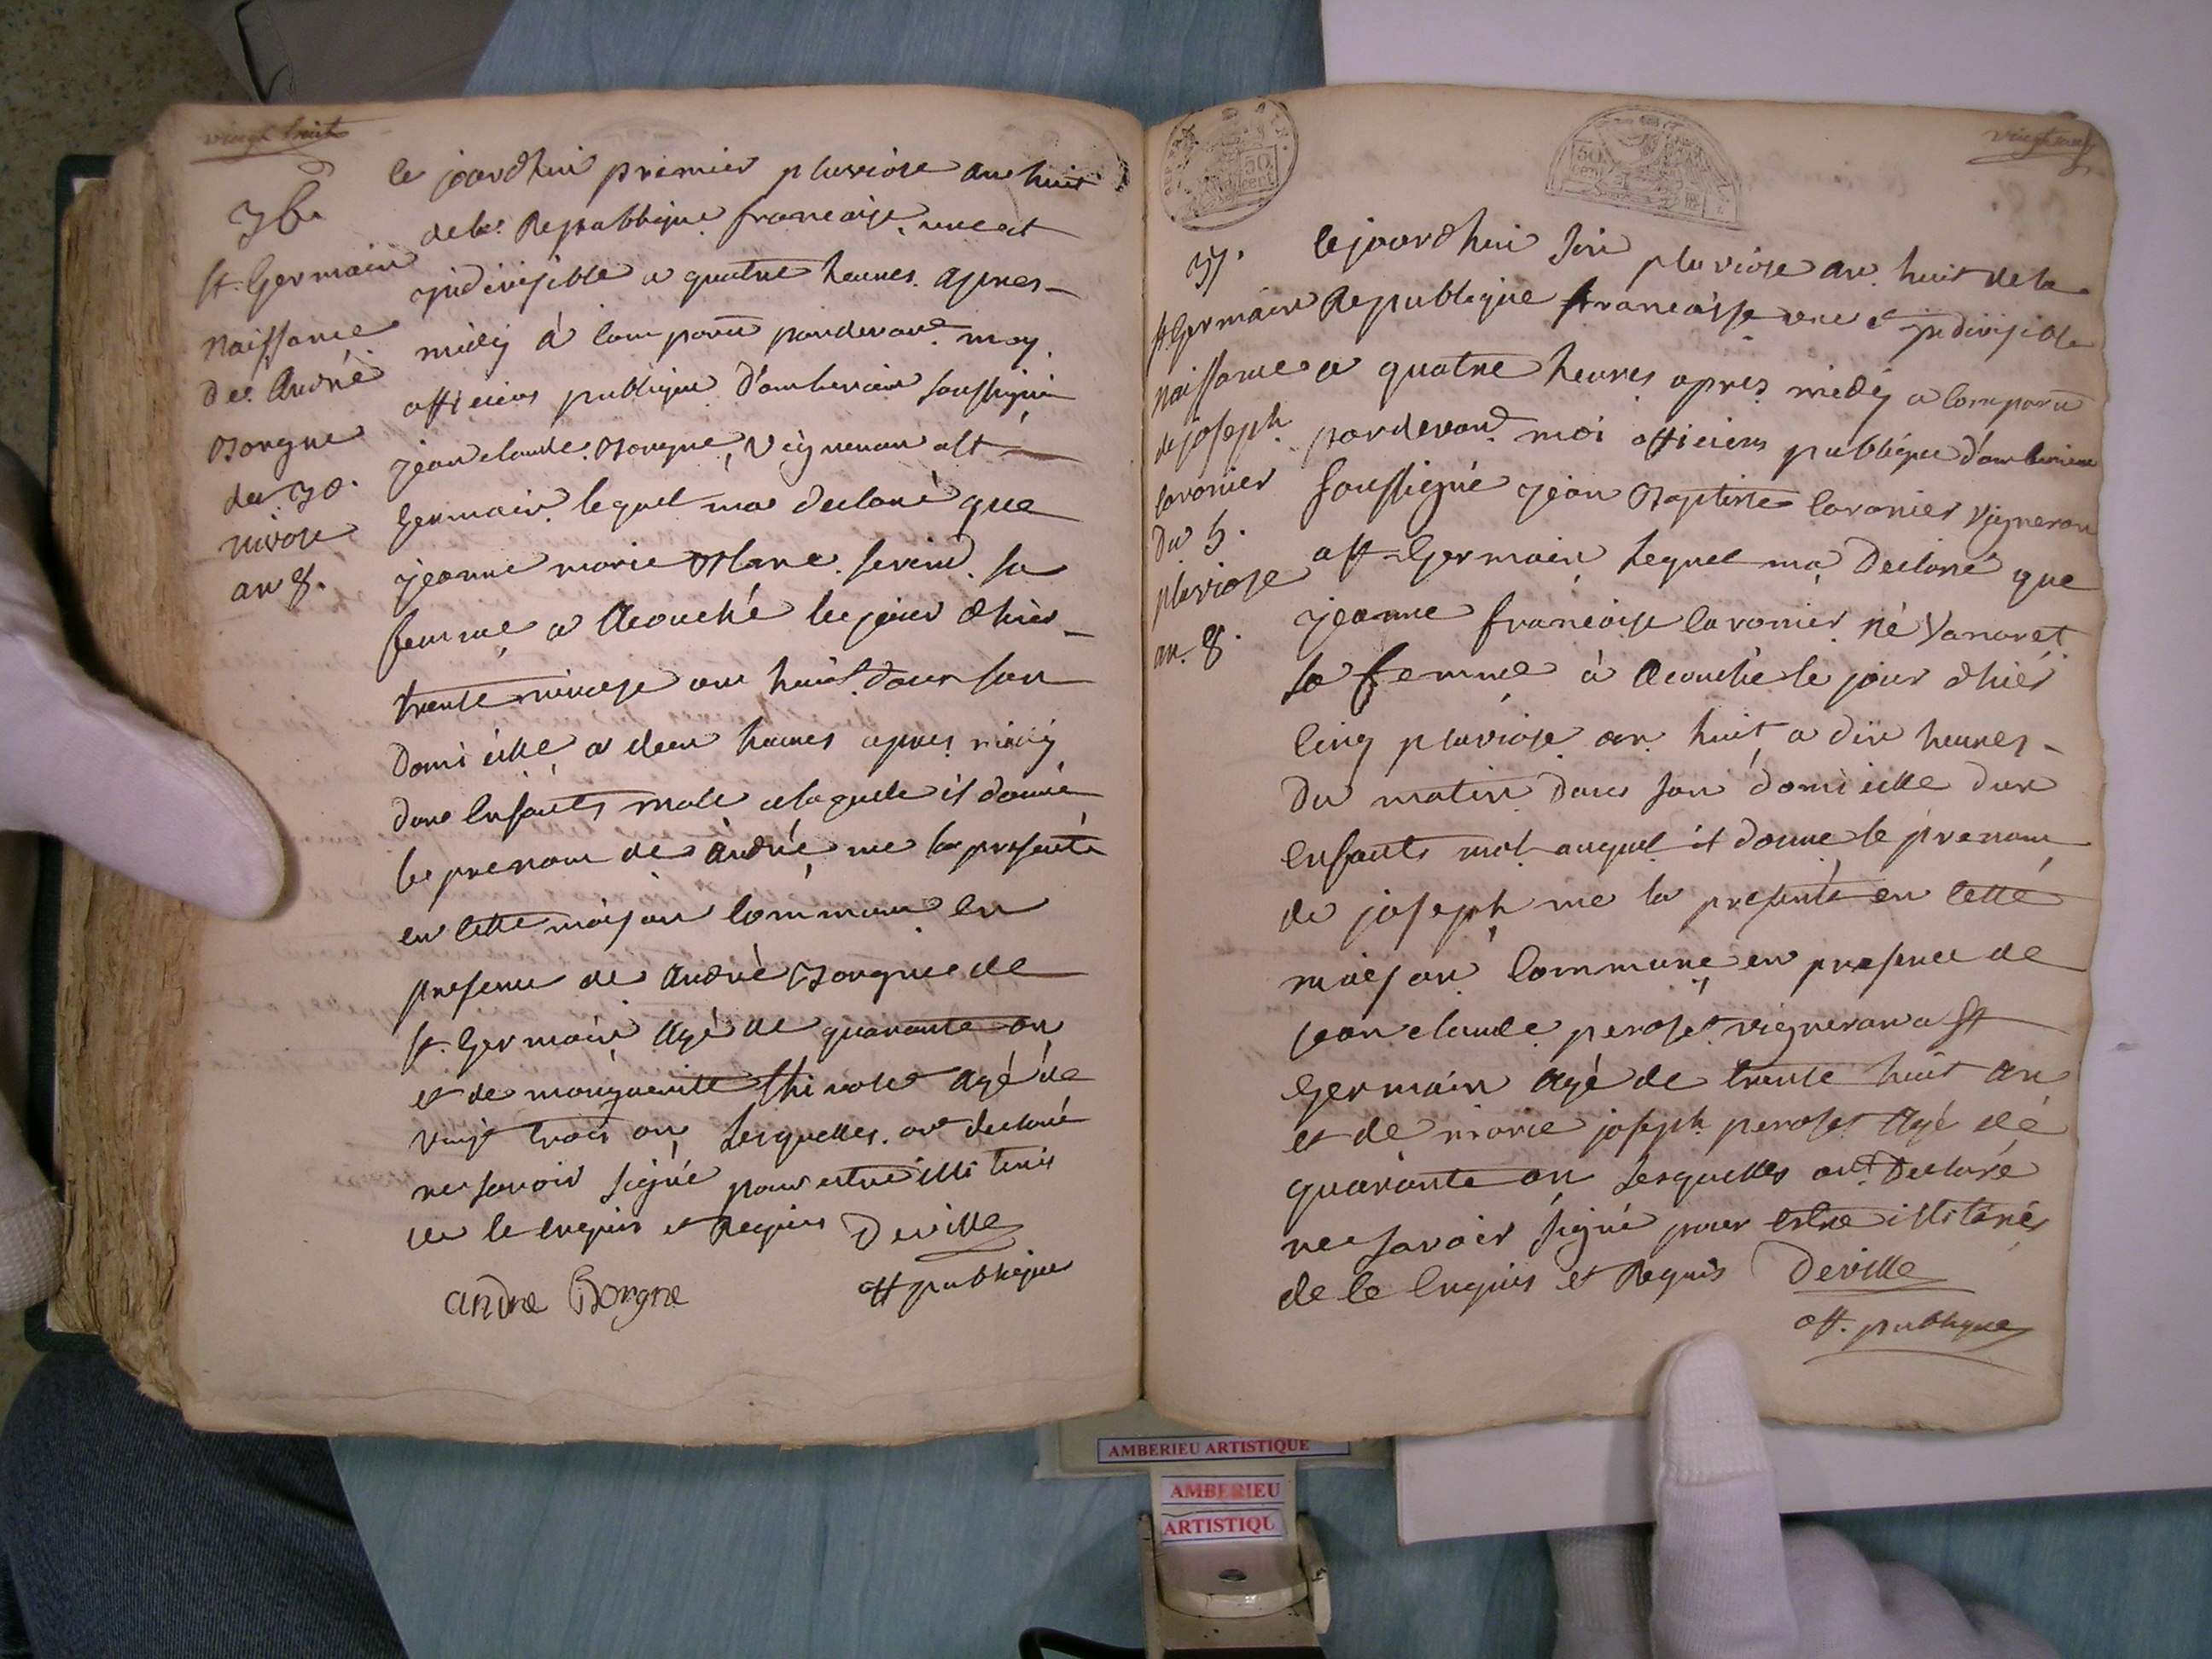 vingt huit
36.
St. Germain
Naissance
De André
Borgne
du 30.
nivose
an 8.
le jourdhui premier pluviose an huit
de la Republique francaise une et
jndivisible a quatre heures apres
midy à comparu pardevant moy
officier publique d'amberieu soussigné
jean claude Borgne, Vigneron a St
Germain lequel ma declaré que
jeanne marie sa
femme a Acouché le jour dhier
trente nivose an huit dans son
Domicille a deux heures apres midy
dun Enfants male alaquelle il donné
le prenom de André me la presenté
en cette maison commune en
presence de André Borgne de
St. Germain Agé de quarante an
et de marguerite thinolet Agé de
vingt trois an lesquelles ont declaré
ne savoir signé pour estre illiteris
de le enquis et Requis Deville
andre Borgne
off publique
vingt neuf
50
cent
50
cent
37.
St Germain
Naissance
de joseph
lavorier
Du 5.
pluviose
an. 8.
le jourdhui six pluviose an huit de la
Republique francaisse une et jndivisible
a quatre heures apres midy a comparu
pardevant moi officier publique d'amberieu
soussigné jean Baptiste lavorier vigneron
a St Germain lequel ma Declaré que
jeanne francoise lavorier né Vanaret
sa femme à Acouché le jour dhier
cinq pluviose an huit a dix heures
Du matin dans son domicille dun
enfants mal auquel il donne le prenom
de joseph me la presenté en cette
maison commune en presence de
jean claude peroset vigneron a St
Germain Agé de trente huit an
et de marie joseph peroset Agé de
quarante an lesquelles ont Declaré
ne savoir signé pour estre illiterés
de le enquis et Requis Deville
off. publique
AMBERIEU ARTISTIQUE
AMBERIEU
ARTISTIQU